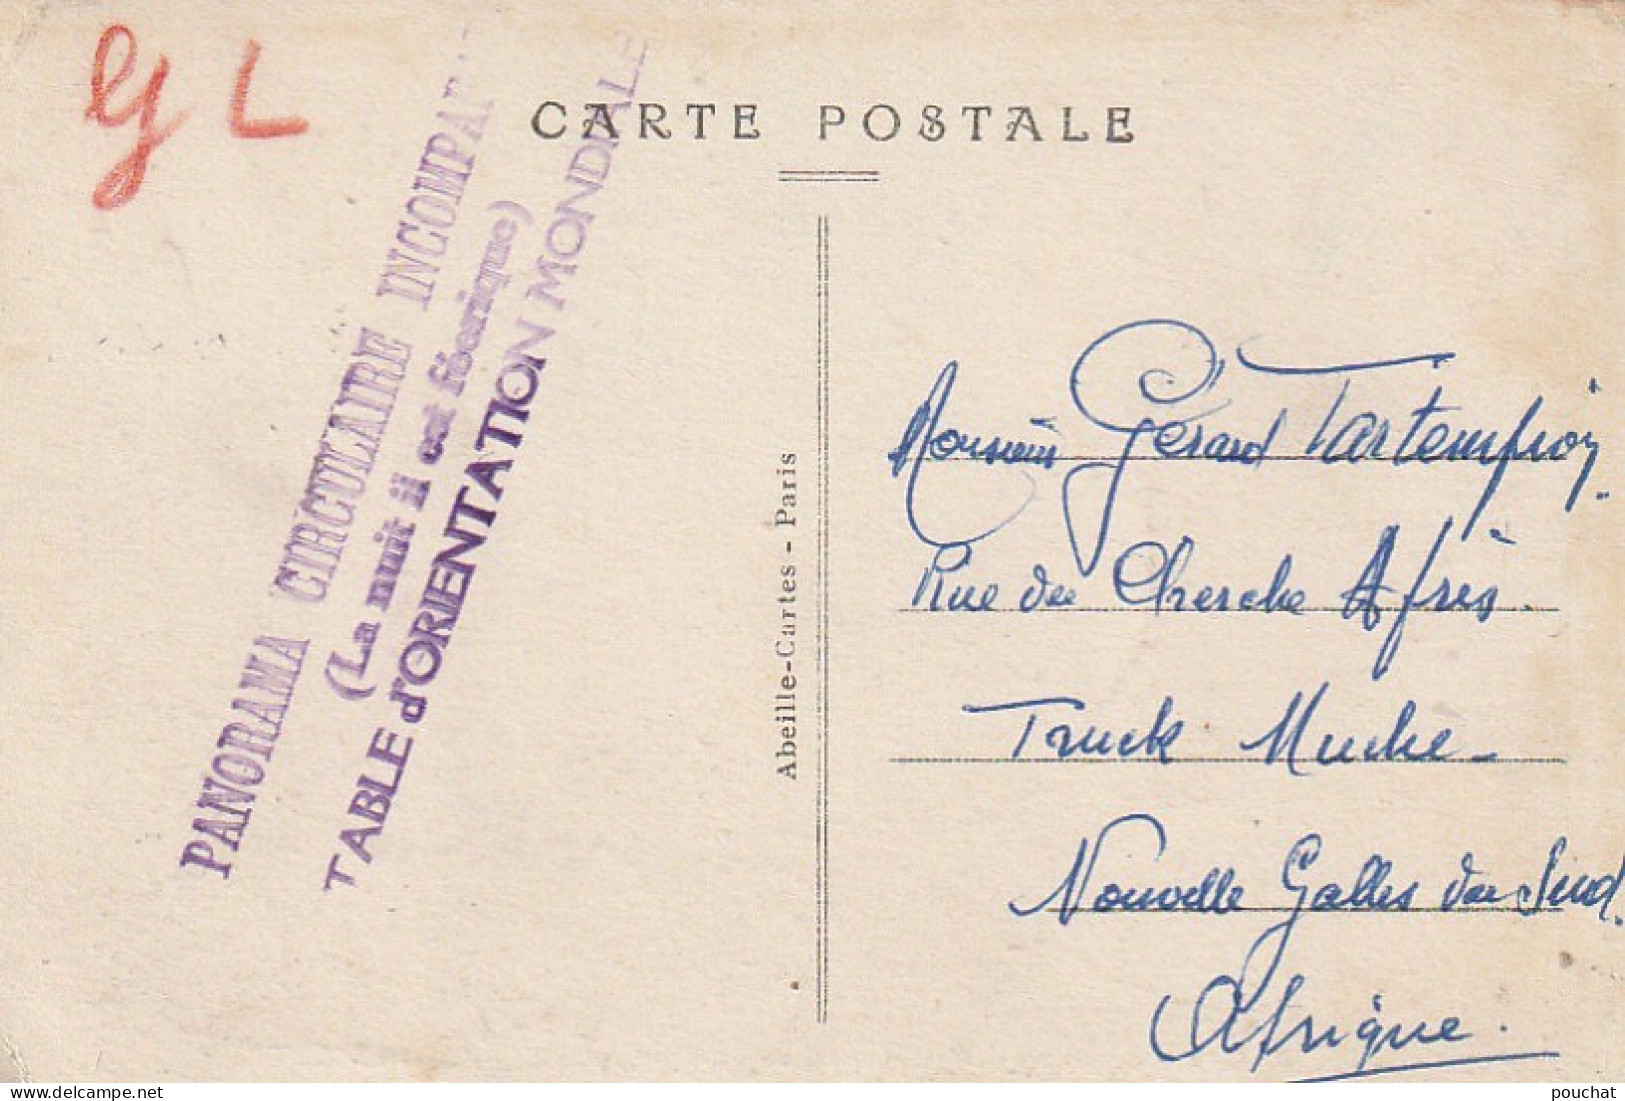 GL
CARTE POSTALE
PANORAMA CIRCULAIRE INCOMPAR
(La nuit il est féerique)
TABLE d'ORIENTATION MONDIALE
Abeille-Cartes - Paris
Monsieur Gérard Tartempion.
Rue du Cherche Après.
Truck Muche -
Nouvelle Galles du Sud.
Afrique.
pouchat